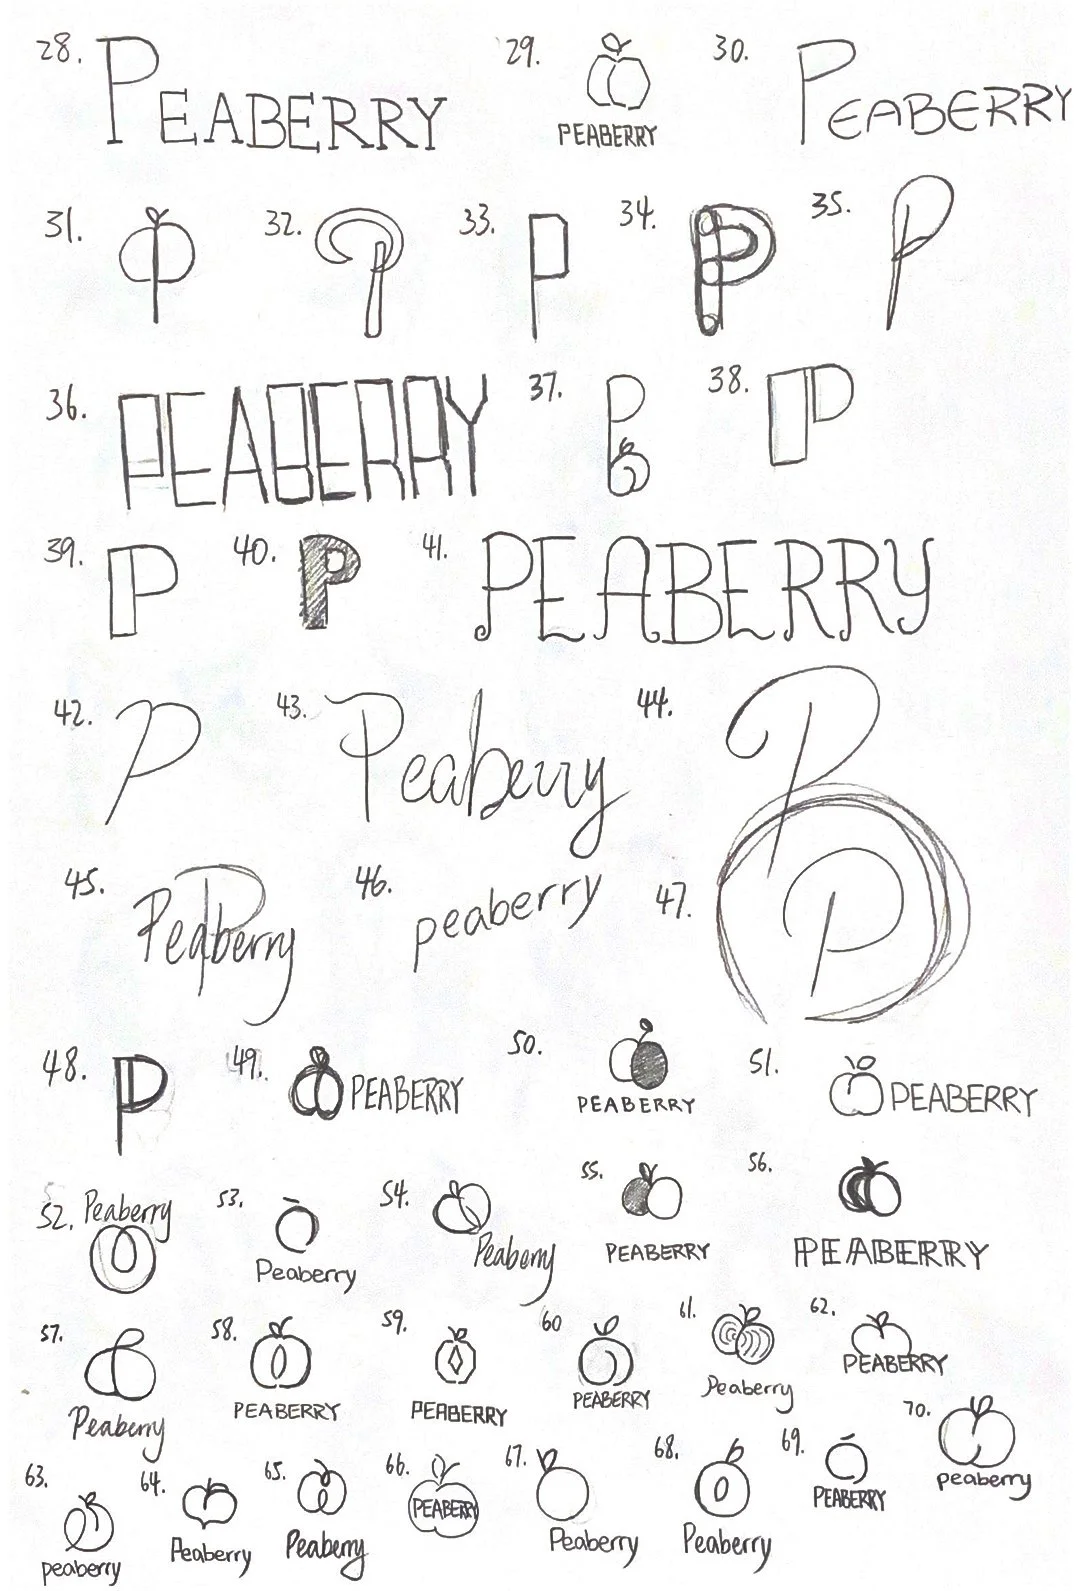 28. PEABERRY
29. PEABERRY
30. PEABERRY
31. P
32. P
33. P
34. P
35. P
36. PEABERRY
37. P
38. P
39. P
40. P
41. PEABERRY
42. P
43. Peaberry
44. P
45. Peaberry
46. peaberry
47. P
48. P
49. PEABERRY
50. PEABERRY
51. PEABERRY
52. Peaberry
53. Peaberry
54. Peaberry
55. PEABERRY
56. PEABERRY
57. Peaberry
58. PEABERRY
59. PEABERRY
60 PEABERRY
61. Peaberry
62. PEABERRY
63. peaberry
64. Peaberry
65. Peaberry
66. PEABERRY
67. Peaberry
68. Peaberry
69. PEABERRY
70. peaberry